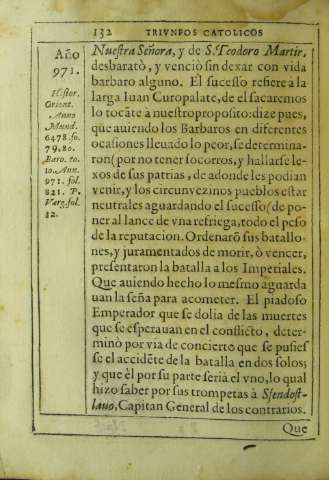 132 TRIVNFOS CATOLICOS
Año
971.
Histor.
Orient.
Anno
Mund.
6478. fo.
79, 80.
Baro. to.
10. Ann.
971. fol.
821. P.
Varg. fol.
32.
Nuestra Señora, y de S. Teodoro Martir,
desbaratò, y venciò sin dexar con vida
barbaro alguno. El sucesso refiere a la
larga Iuan Curopalate, de el sacaremos
lo tocãte à nuestro proposito: dize pues,
que auiendo los Barbaros en diferentes
ocasiones lleuado lo peor, se determina-
ron (por no tener socorros, y hallarse le-
xos de sus patrias, de adonde les podian
venir, y los circunvezinos pueblos estar
neutrales aguardando el sucesso (de po-
ner al lance de vna refriega, todo el peso
de la reputacion. Ordenarõ sus batallo-
nes, y juramentados de morir, ò vencer,
presentaron la batalla a los Imperiales.
Que auiendo hecho lo mesmo aguarda
uan la seña para acometer. El piadoso
Emperador que se dolia de las muertes
que se esperauan en el conflicto, deter-
minò por via de concierto que se pusies
se el accidẽte de la batalla en dos solos;
y que èl por su parte serià el vno, lo qual
hizo saber por sus trompetas à Sfendost-
lauo, Capitan General de los contrarios.
Que